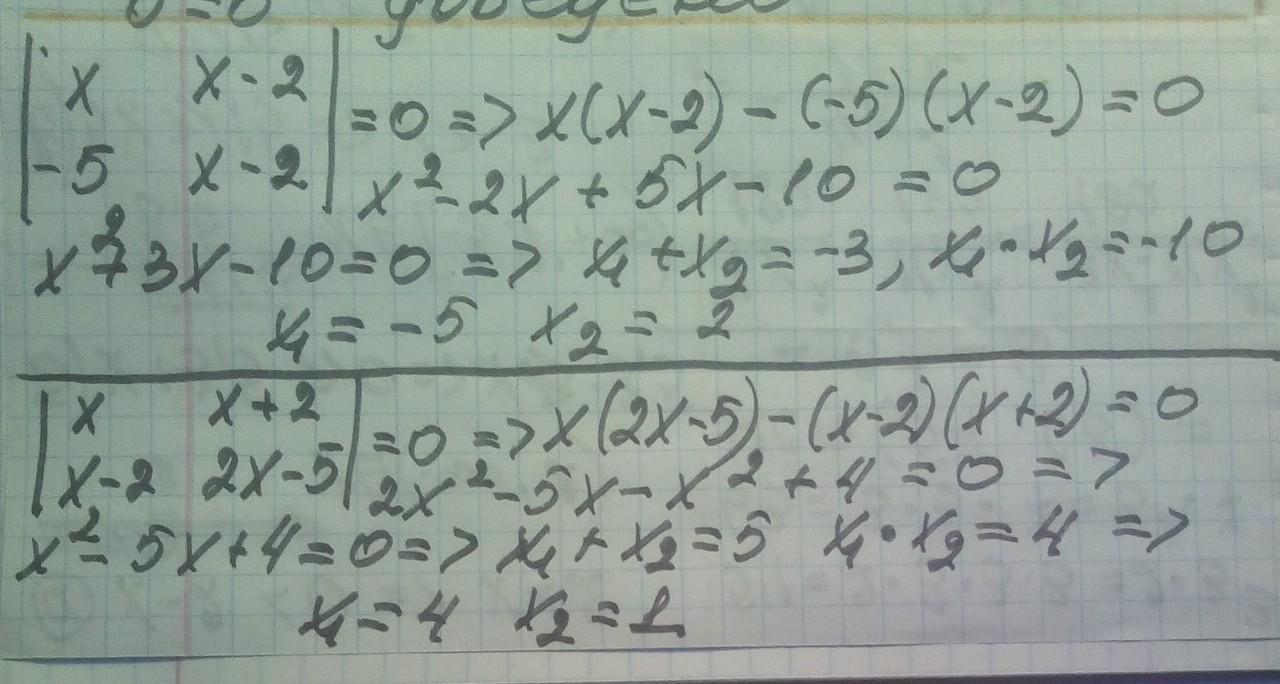 0=0 доведено
| x x-2 |
| -5 x-2 | =0 => x(x-2) - (-5)(x-2) = 0
x²-2x + 5x-10 = 0
x²+3x-10=0 => x₁+x₂=-3, x₁·x₂=-10
x₁=-5 x₂=2
| x x+2 |
| x-2 2x-5 | =0 => x(2x-5)-(x-2)(x+2)=0
2x²-5x-x²+4=0 =>
x²-5x+4=0=> x₁+x₂=5 x₁·x₂=4 =>
x₁=4 x₂=1